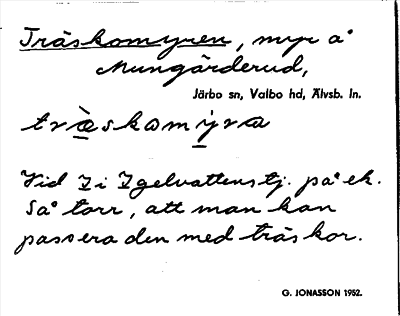 Träskomyren, myr å
Mungärderud,
Järbo sn, Valbo hd, Älvsb. ln.
træ̀skomýra
Vid I i Igelvattenstj. på ek.
Så torr, att man kan
passera den med träskor.
G. JONASSON 1952.